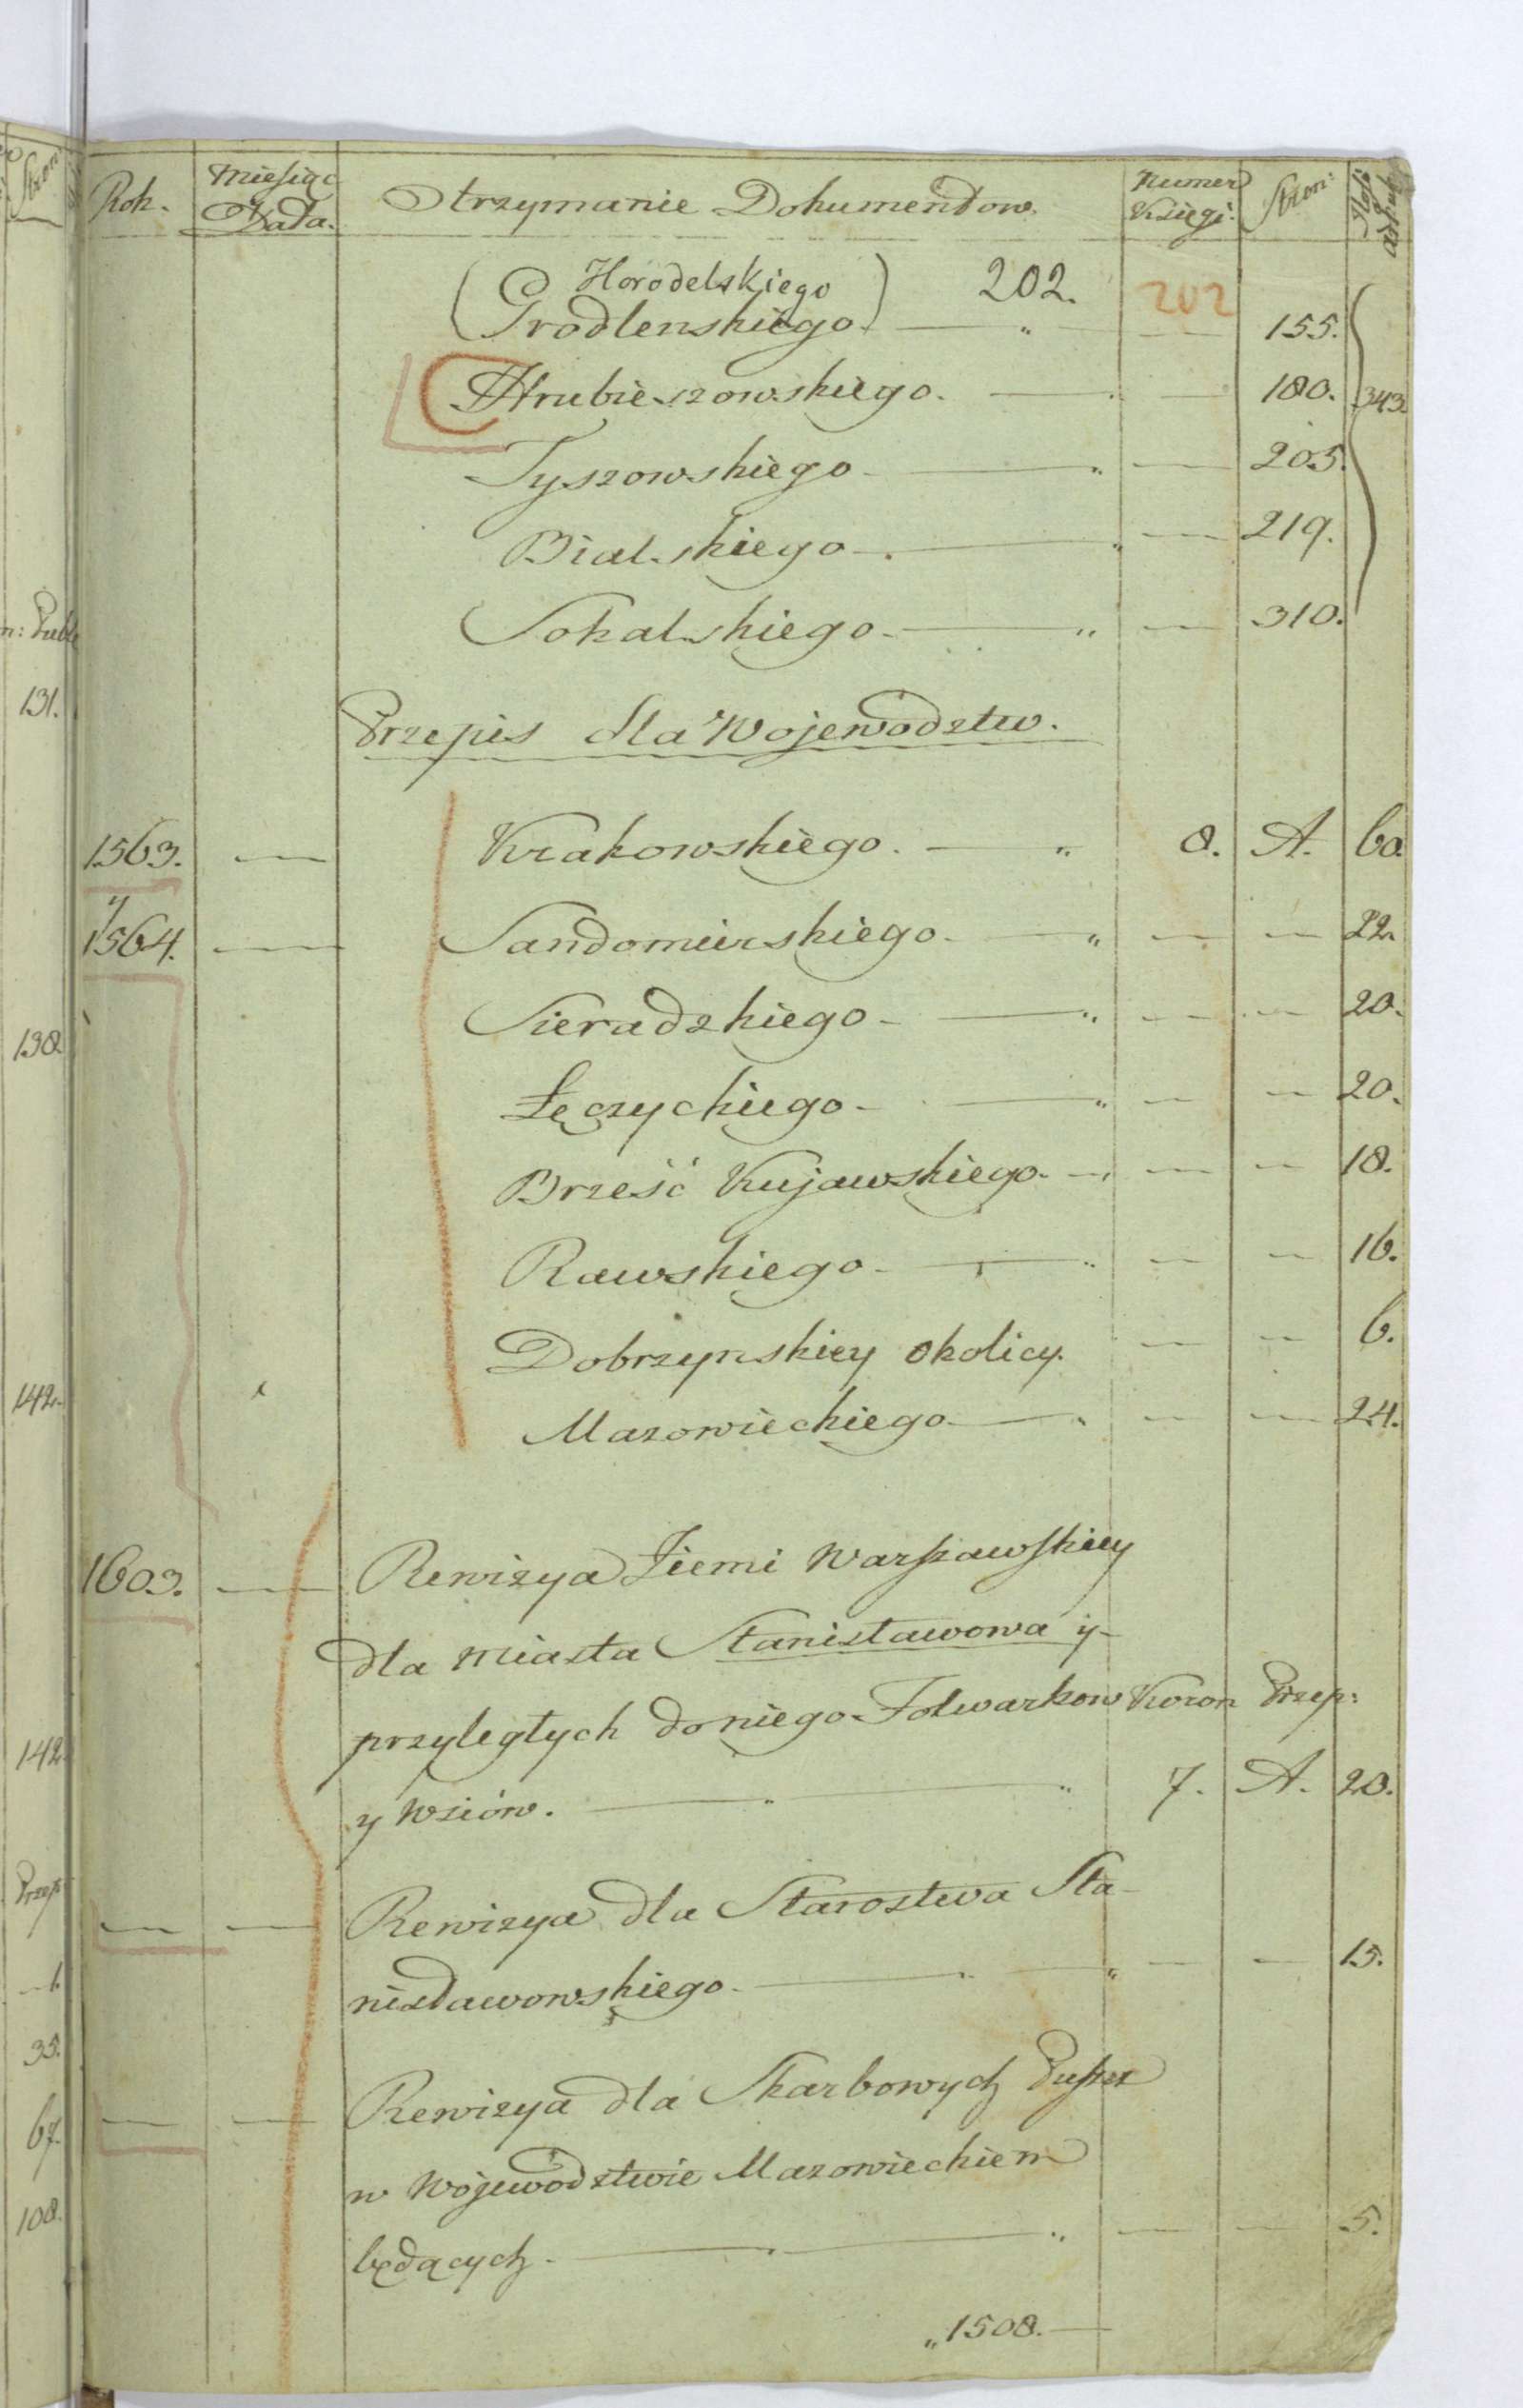 Rok. Miesiąc Data. Otrzymanie Dokumentow. Numer Księgi. Stron: Ilość arkuszy
Horodelskiego 202. 202
(Grodlenskiego) — „ — 155.
Hrubieszowskiego. — — 180. 343.
Tyszowskiego — „ — 205.
Bialskiego — „ — 219.
Sokalskiego — „ — 310.
Przepis dla Wojewodztw.
1563. — Krakowskiego. — „ 8. A. 60.
y
1564. — Sandomierskiego — „ — — 22.
Sieradzkiego — „ — — 20.
Łęczyckiego — „ — — 20.
Brześć Kujawskiego — „ — — 18.
Rawskiego — „ — — 16.
Dobrzynskiey okolicy. — — 6.
Mazowieckiego — „ — — 24.
1603. — Rewizya Ziemi Warszawskiey
dla Miasta Stanisławowa y
przyległych do niego Folwarkow Koron Przep:
y Wsiów. — „ — „ 7. A. 20.
— — Rewizya dla Starostwa Sta-
nisławowskiego — „ — „ — — 15.
— — Rewizya dla Skarbowych Puszcz
w Wojewodztwie Mazowieckiem
będących — „ — „ — — 5.
„ 1508. —
Stron:
n: Publ
131.
138
142.
142
Przep
— 1.
35.
67.
108.